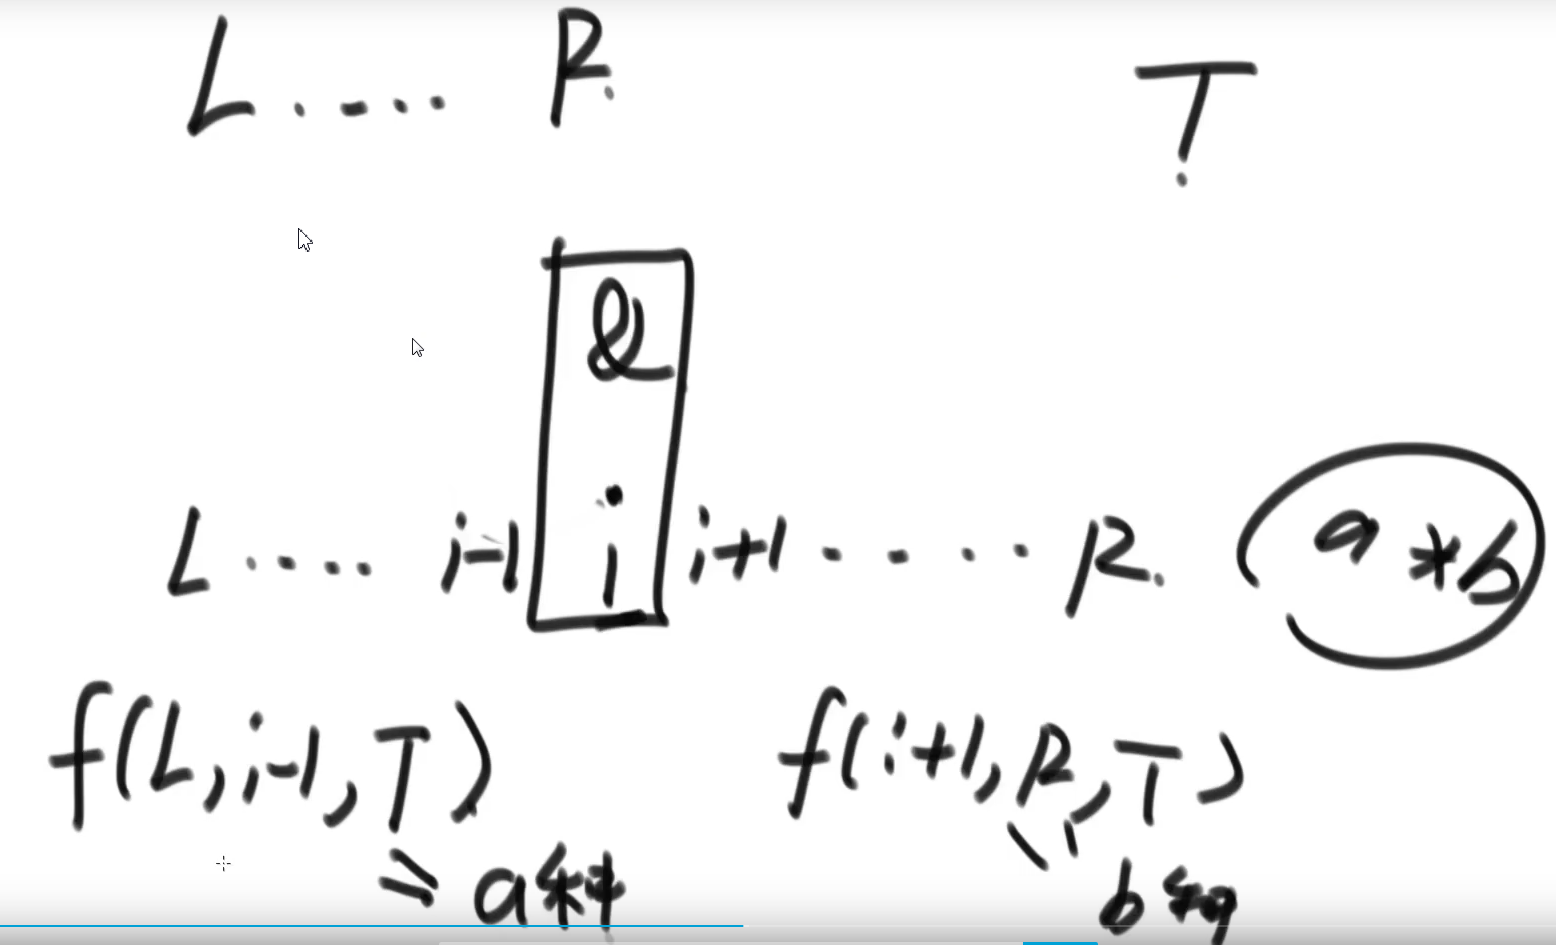 L . . . . R.
T
&
L . . . . i-1 i i+1 . . . . R. a * b
f(L, i-1, T) f(i+1, R, T)
= a种 b种